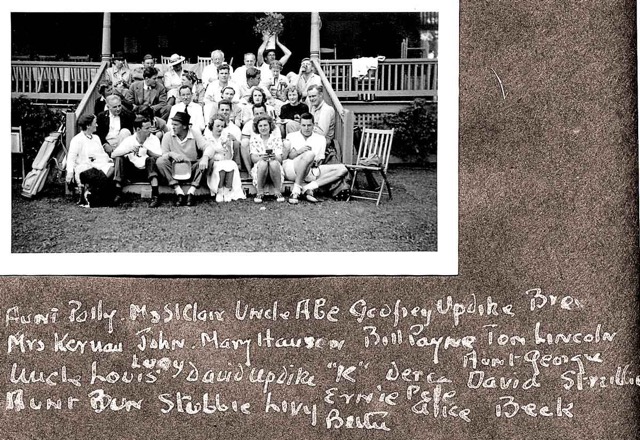 Aunt Polly. Mrs StClair Uncle ABe Godfrey Updike
Mrs Kernan John. Mary Hauson Bill Payne Tom Lincoln
Uncle Louis Lucy David Updike "K" David Aunt George
Aunt Bun Stubbie Livy Ernie Pete Alice Beck